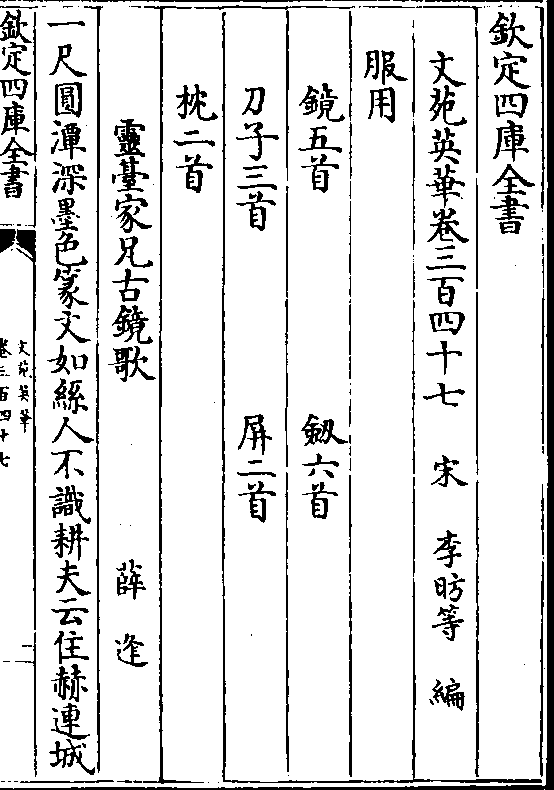 欽定四庫全書
文苑英華卷三百四十七 宋 李昉等 編
服用
鏡五首 劔六首
刀子三首 屏二首
枕二首
靈䑓家兄古鏡歌 薛逢
一尺圓潭深墨色篆文如絲人不識耕夫云住赫連城
欽定四庫全書
文苑英華
卷三百四十七
一